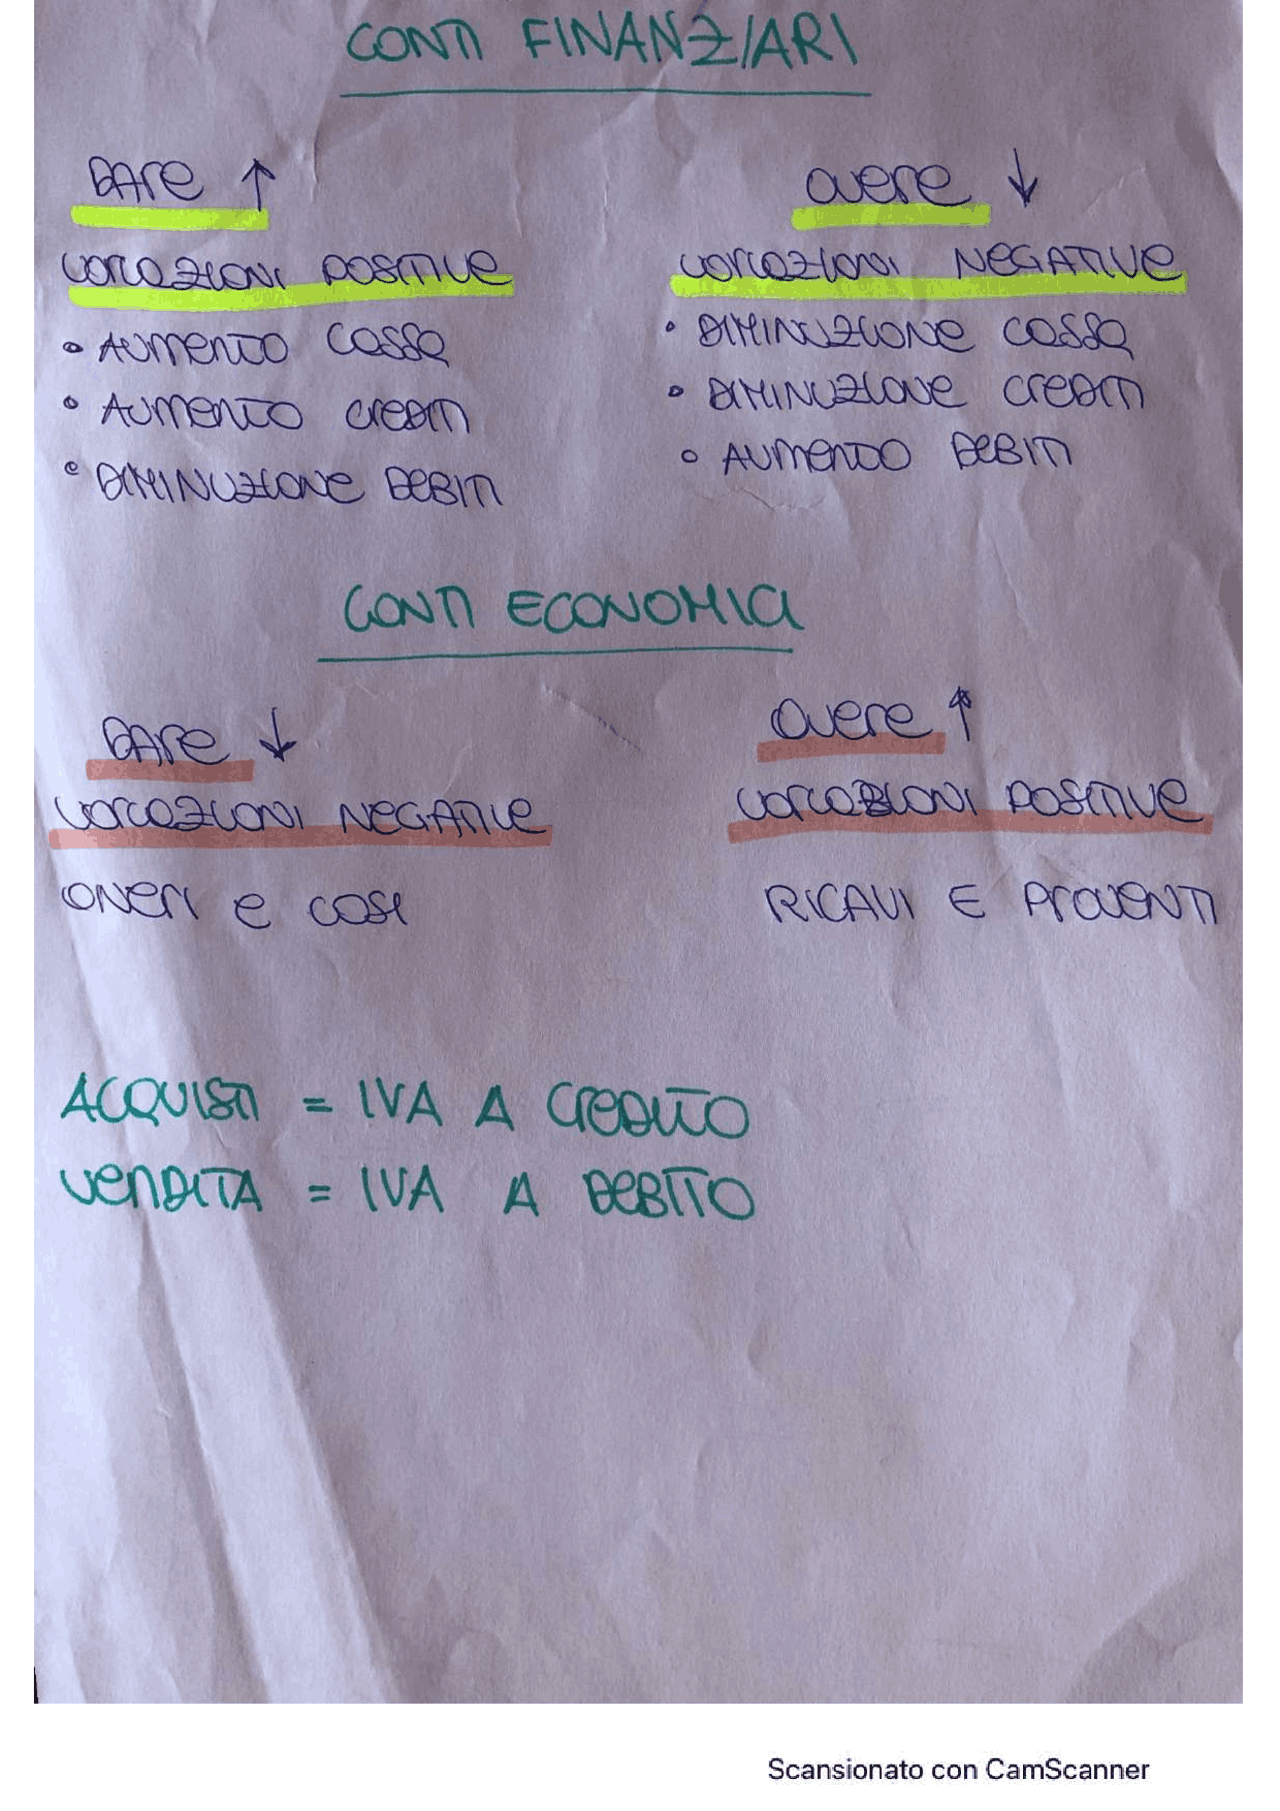 CONTI FINANZIARI
DARE ↑
AVERE ↓
VARIAZIONI POSITIVE
VARIAZIONI NEGATIVE
• AUMENTO CASSA
• DIMINUZIONE CASSA
• AUMENTO CREDITI
• DIMINUZIONE CREDITI
• DIMINUZIONE DEBITI
• AUMENTO DEBITI
CONTI ECONOMICI
DARE ↓
AVERE ↑
VARIAZIONI NEGATIVE
VARIAZIONI POSITIVE
ONERI E COSTI
RICAVI E PROVENTI
ACQUISTI = IVA A CREDITO
VENDITA = IVA A DEBITO
Scansionato con CamScanner